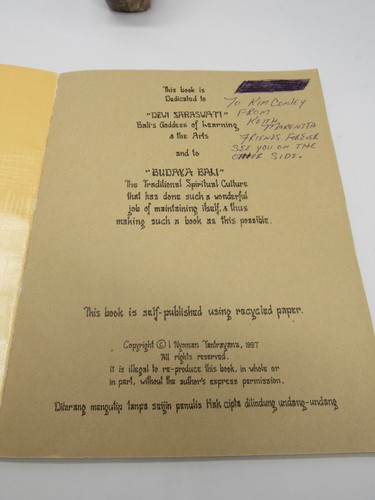 This book is
Dedicated to
"DEWI SARASWATI"
Bali's Goddess of Learning
& the Arts
and to
"BUDAYA BALI"
The Traditional Spiritual Culture
that has done such a wonderful
job of maintaining itself, & thus
making such a book as this possible.
TO KIM CONLEY
FROM
KEITH,
FRIENDS FOREVER
SEE YOU ON THE
OTHER SIDE.
This book is self-published using recycled paper.
Copyright © I Nyoman Tantrayana, 1997
All rights reserved.
it is illegal to re-produce this book, in whole or
in part, without the author's express permission.
Dilarang mengutip tanpa seijin penulis Hak cipta dilindung undang-undang